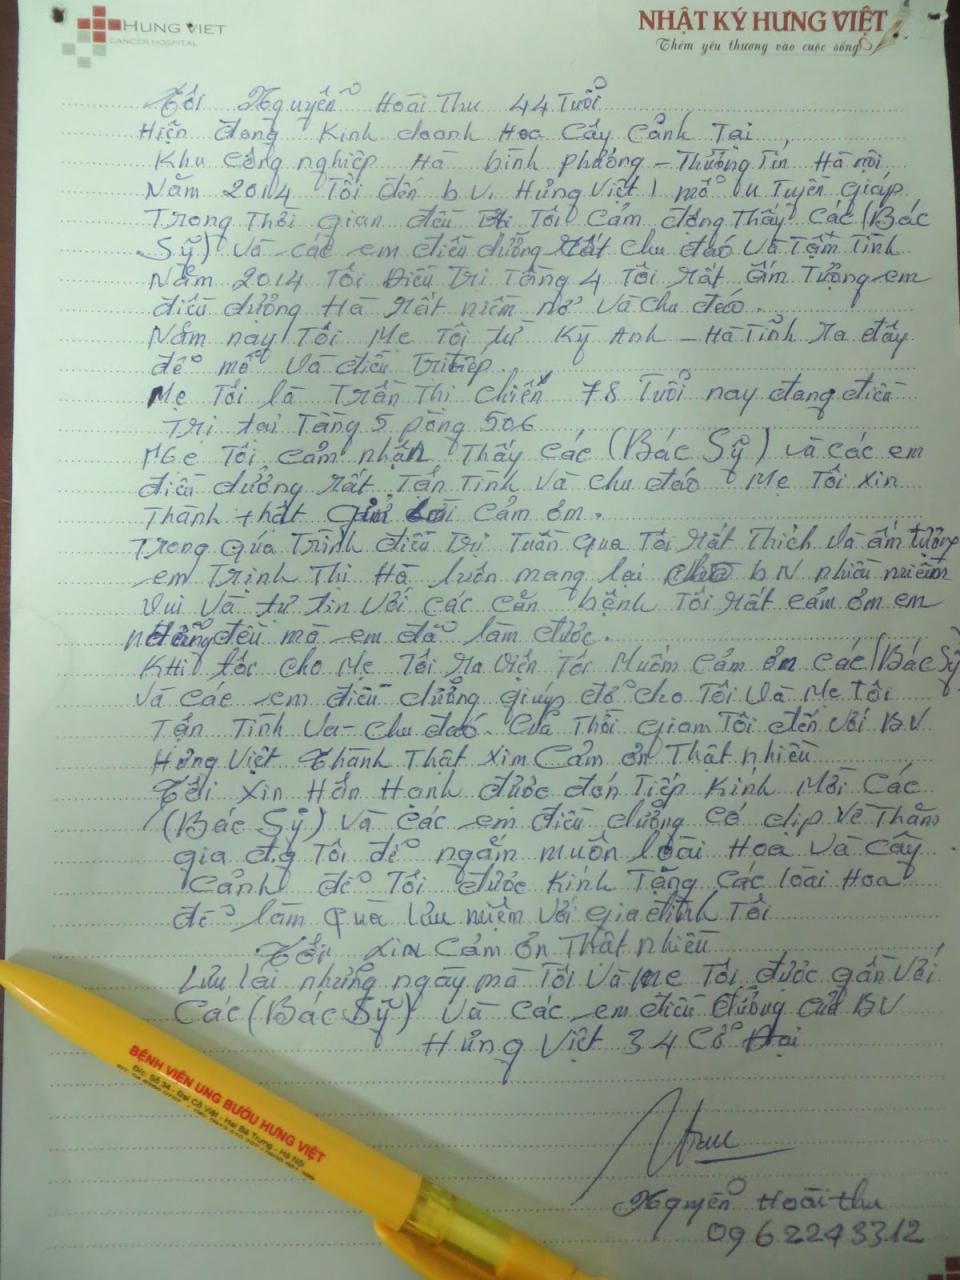 HUNG VIET
CANCER HOSPITAL
NHẬT KÝ HƯNG VIỆT
Thêm yêu thương vào cuộc sống
Tôi Nguyễn Hoài Thu 44 Tuổi
Hiện đang Kinh doanh Hoa Cây Cảnh Tại
Khu Công nghiệp Hà bình phương - Thường Tín Hà nội
Năm 2014 Tôi đến b.v. Hưng Việt mổ u Tuyến giáp
Trong Thời gian điều Tôi Cảm động Thấy Các (Bác
Sỹ) Và các em điều dưỡng rất chu đáo Và Tận Tình
Năm 2014 Tôi Điều Trị Tầng 4 Tôi rất ấm Tượng em
điều dưỡng Hà rất niềm nở Và chu đáo.
Năm nay Tôi Mẹ Tôi từ Kỳ Anh - Hà Tĩnh ra đây
để mổ Và điều Trị tiếp.
Mẹ Tôi là Trần Thị Chiến 78 Tuổi nay đang điều
Trị tại Tầng 5 pòng 506
Mẹ Tôi cảm nhận Thấy các (Bác Sỹ) và các em
điều dưỡng rất Tận Tình Và chu đáo Mẹ Tôi xin
Thành thật Gửi Lời cảm ơm.
Trong qúa Trình điều Trị Tuần qua Tôi rất Thích Và ấm tượng
em Trịnh Thị Hà luôn mang lại cho b N nhiều niềm
Vui Và tự tin Với các căn bệnh Tôi rất cảm ơm em
đều mà em đã làm được.
Khi tôi cho Mẹ Tôi ra Viện Tôi Muốm Cảm ơn các (Bác Sỹ
Và các em điều dưỡng giúp đỡ cho Tôi Và Mẹ tôi
Tận Tình Và - chu đáo. Cả Thời giam Tôi đến Với BV
Hưng Việt Thành Thật xim Cảm ơn Thật nhiều
Tôi xin Hân Hạnh được đón Tiếp Kính Mời Các
(Bác Sỹ) Và các em điều dưỡng có dịp Về Thăm
gia đg Tôi để ngắm muôn loài Hoa Và Cây
Cảnh để Tôi được Kính Tặng các loài Hoa
để làm Quà lưu niệm Với gia đình Tôi
Tôi xin Cảm ơn Thật nhiều
Lưu lại những ngày mà Tôi Và Mẹ Tôi được gần Với
Các (Bác Sỹ) Và Các em điều dưỡng của BV
Hưng Việt 34 Cồ Đại
Nguyễn Hoài thu
0962243312
BỆNH VIỆN UNG BƯỚU HƯNG VIỆT
Đ/c: Số 34 - Đại Cồ Việt - Hai Bà Trưng - Hà Nội